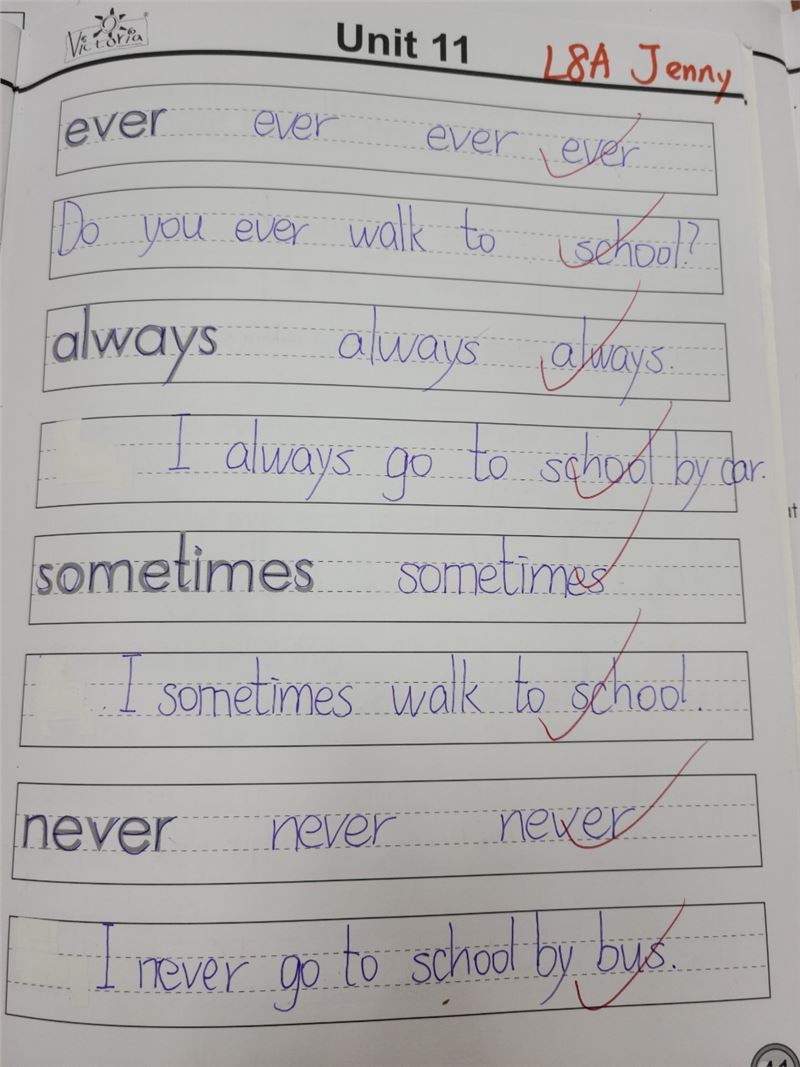 Victoria
Unit 11
L8A Jenny
ever ever ever ever
Do you ever walk to school?
always always always.
I always go to school by car.
sometimes sometimes
I sometimes walk to school.
never never never
I never go to school by bus.